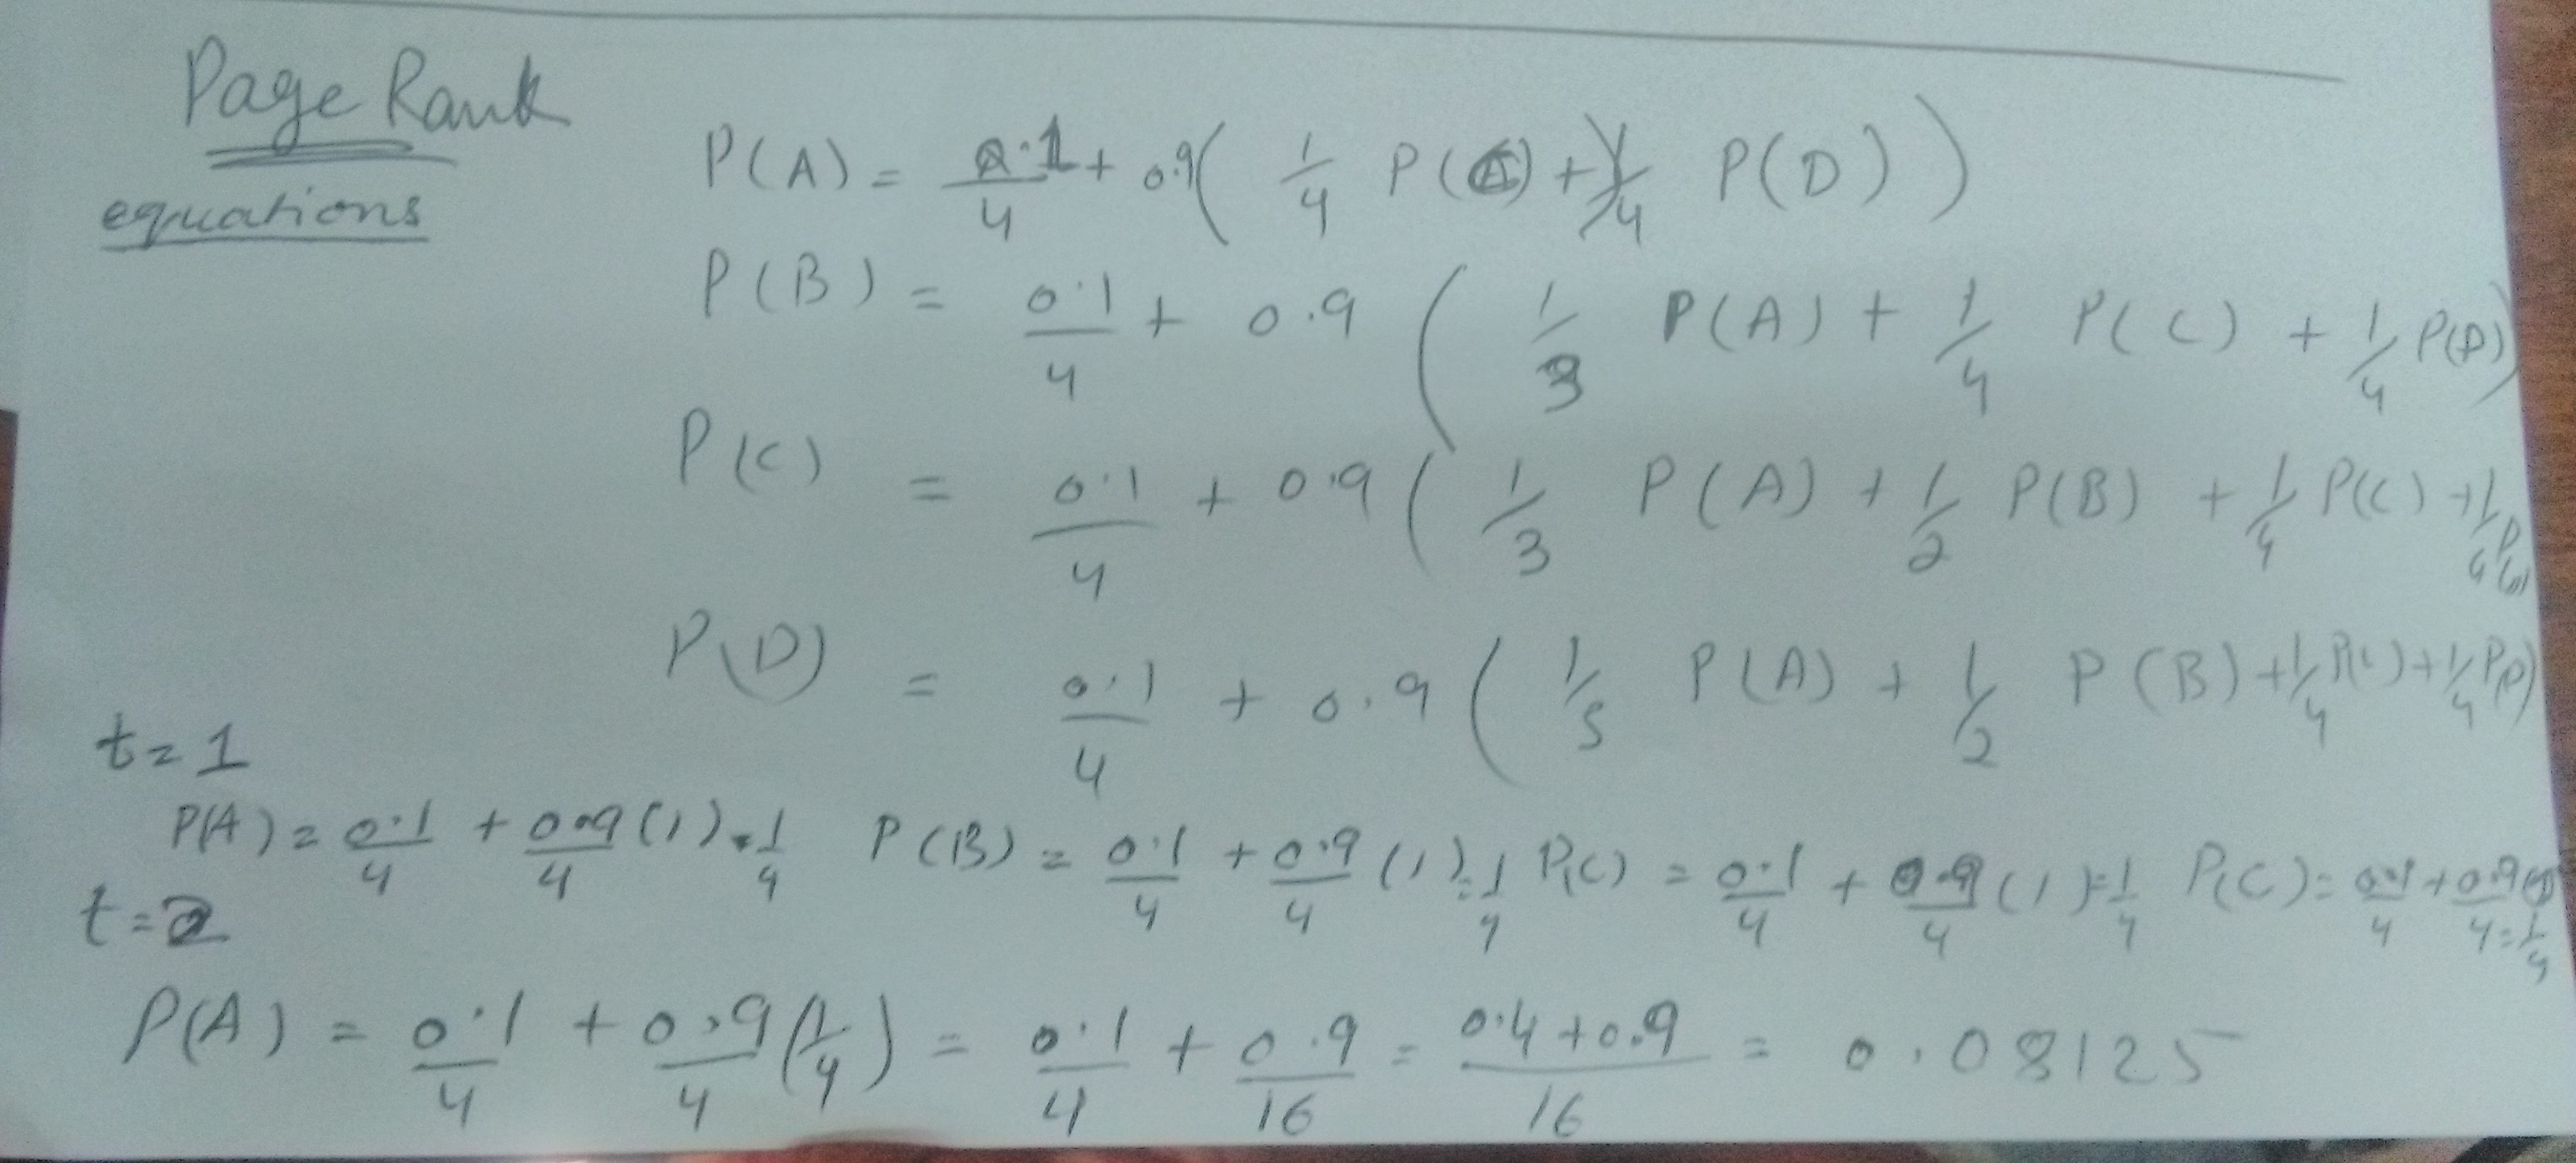 Page Rank
equations
P(A) = 0.1/4 + 0.9( 1/4 P(C) + 1/4 P(D) )
P(B) = 0.1/4 + 0.9 ( 1/3 P(A) + 1/4 P(C) + 1/4 P(D) )
P(C) = 0.1/4 + 0.9 ( 1/3 P(A) + 1/2 P(B) + 1/4 P(C) + 1/4 P(D)
P(D) = 0.1/4 + 0.9 ( 1/3 P(A) + 1/2 P(B) + 1/4 P(C) + 1/4 P(D)
t=1
P(A) = 0.1/4 + 0.9/4 (1) = 1/4 P(B) = 0.1/4 + 0.9/4 (1) = 1/4 P(C) = 0.1/4 + 0.9/4 (1) = 1/4 P(C) = 0.1/4 + 0.9/4 (1) = 1/4
t=2
P(A) = 0.1/4 + 0.9/4 (1/4) = 0.1/4 + 0.9/16 = 0.4+0.9/16 = 0.08125